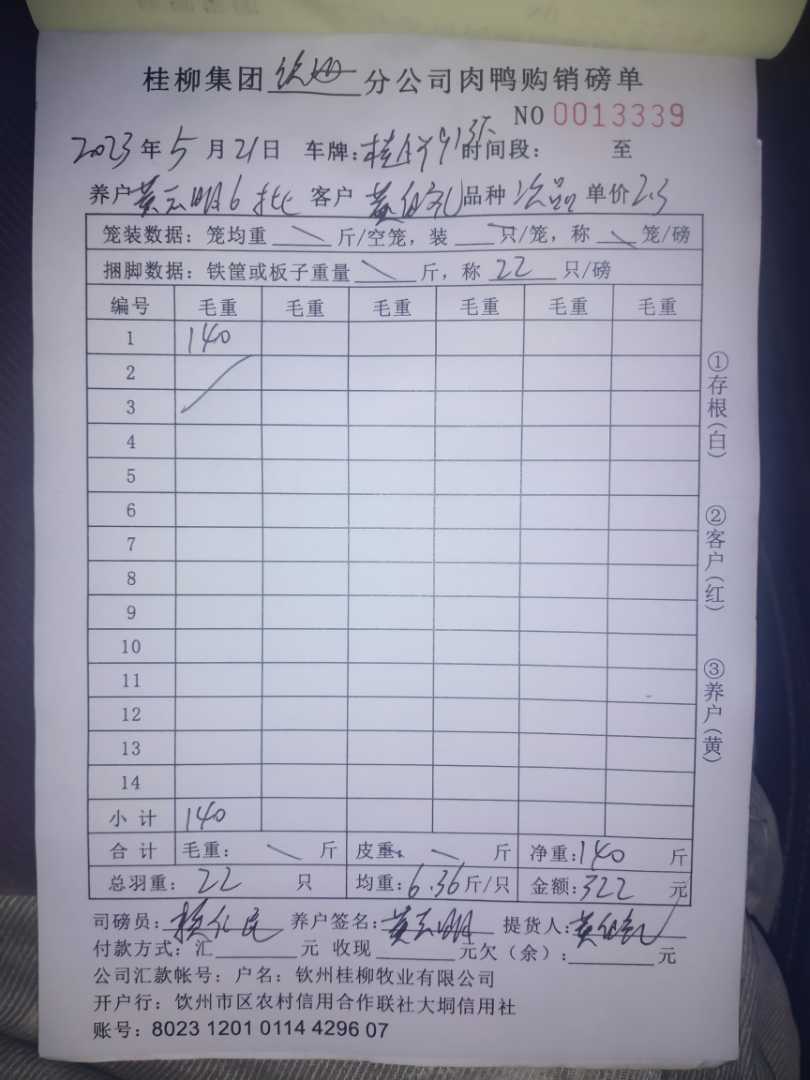 桂柳集团钦州分公司肉鸭购销磅单
NO 0013339
2023年5月21日 车牌:桂 时间段: 至
养户黄云明6批 客户 黄 品种次品单价2.3
笼装数据：笼均重 \ 斤/空笼，装 \ 只/笼，称 \ 笼/磅
捆脚数据：铁筐或板子重量 \ 斤，称 22 只/磅
编号 毛重 毛重 毛重 毛重 毛重 毛重
1 140
2
3
4
5
6
7
8
9
10
11
12
13
14
小计 140
合计 毛重: \ 斤 皮重: \ 斤 净重:140 斤
总羽重: 22 只 均重:6.36斤/只 金额:322 元
司磅员: 养户签名:黄云明 提货人:黄
付款方式：汇 元 收现 元欠（余）: 元
公司汇款帐号：户名：钦州桂柳牧业有限公司
开户行：饮州市区农村信用合作联社大垌信用社
账号：8023 1201 0114 4296 07
①存根(白)
②客户(红)
③养户(黄)